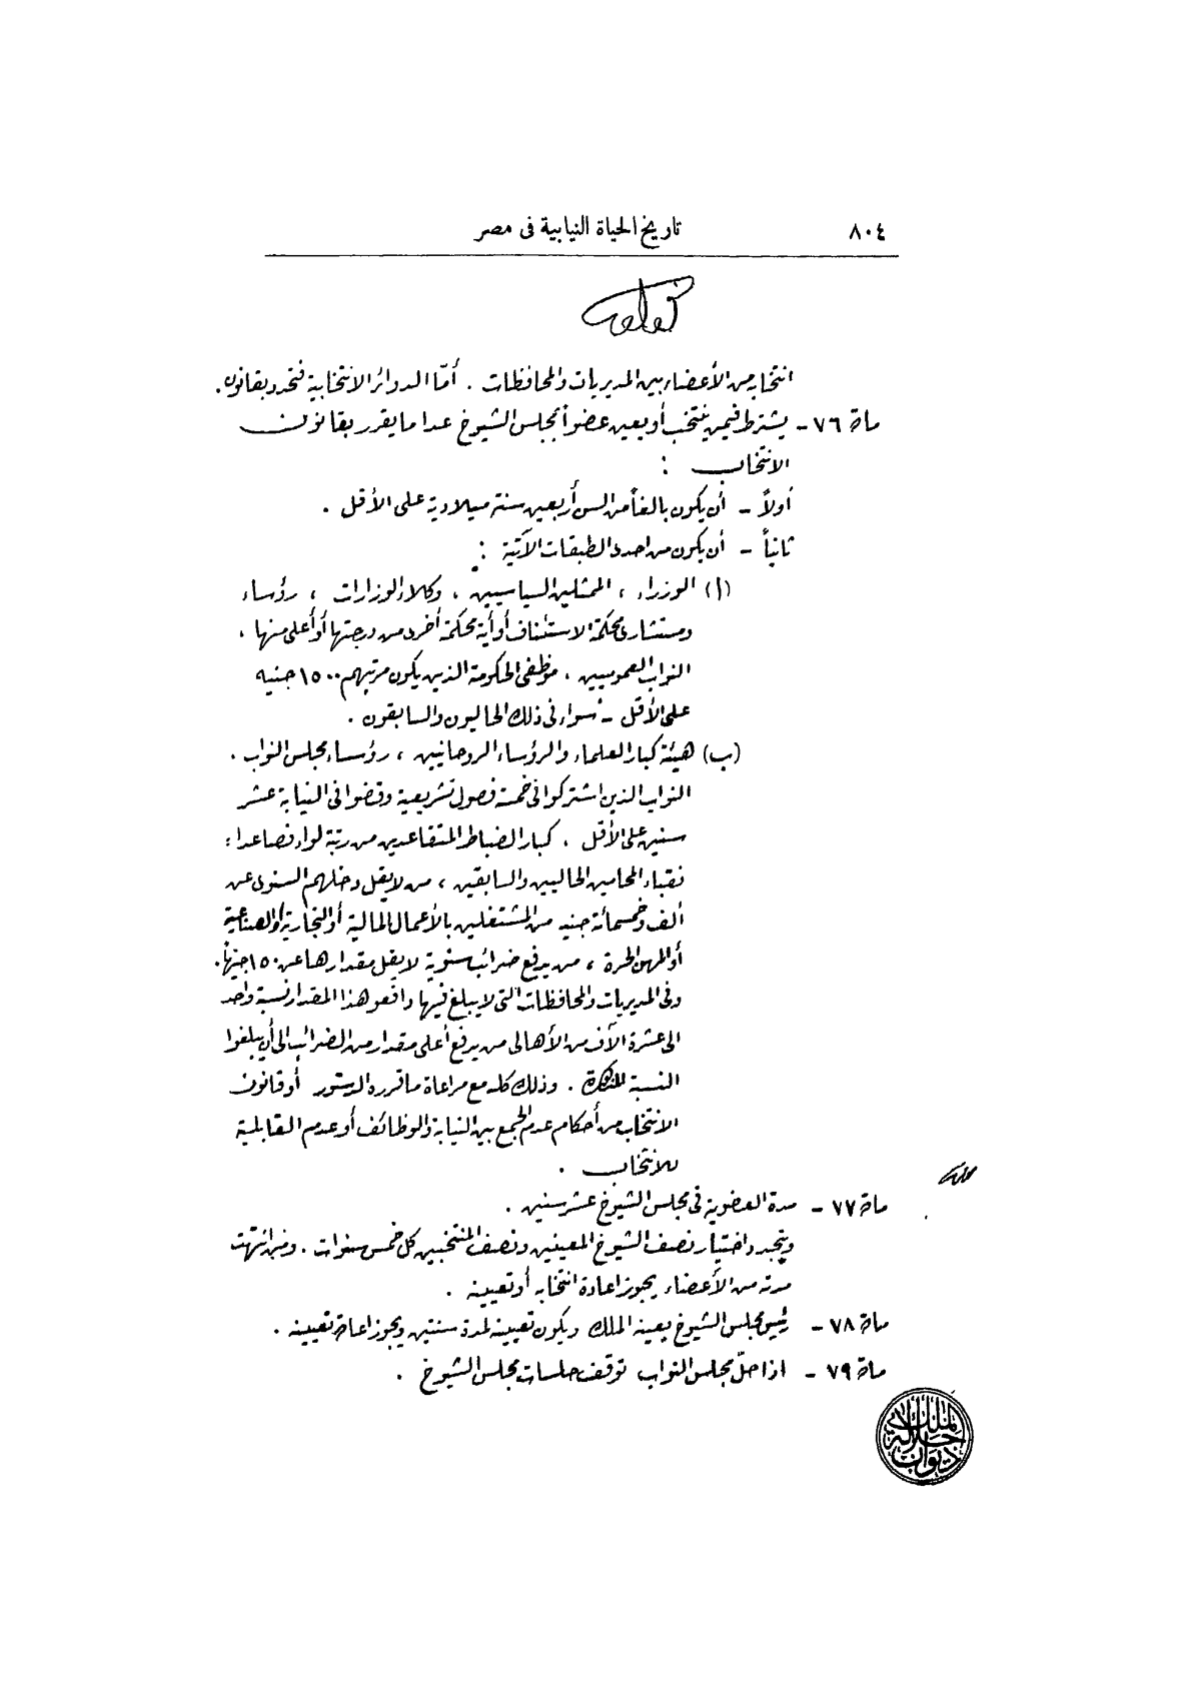 ٨٠٤
تاريخ الحياة النيابية فى مصر
انتخابه من الأعضاء بين المديريات والمحافظات . أمّا الدوائر الانتخابية فتحدد بقانون .
مادة ٧٦ - يشترط فيمن ينتخب أو يعين عضواً بمجلس الشيوخ عدا ما يقرر بقانون
الانتخاب :
أولاً - أن يكون بالغاً من السن أربعين سنة ميلادية على الأقل .
ثانياً - أن يكون من احدى الطبقات الآتية :
(أ) الوزراء ، الممثلين السياسيين ، وكلاء الوزارات ، رؤساء
ومستشارى محكمة الاستئناف أو أية محكمة أخرى من درجتها أو أعلى منها ،
النواب العموميين ، موظفى الحكومة الذين يكون مرتبهم ١٥٠٠ جنيه
على الأقل - سواء فى ذلك الحاليون والسابقون .
(ب) هيئة كبار العلماء والرؤساء الروحانيين ، رؤساء مجلس النواب .
النواب الذين اشتركوا فى خمسة فصول تشريعية وقضوا فى النيابة عشر
سنين على الأقل ، كبار الضباط المتقاعدين من رتبة لواء فصاعدا ؛
نقباء المحامين الحاليين والسابقين ، من لا يقل دخلهم السنوى عن
ألف وخمسمائة جنيه من المشتغلين بالأعمال المالية أو التجارية أو الصناعية
أو المهن الحرة ، من يدفع ضرائب سنوية لا يقل مقدارها عن ١٥٠ جنيهاً .
وفى المديريات والمحافظات التى لا يبلغ فيها دافعو هذا المقدار نسبة واحد
الى عشرة الآف من الأهالى من يدفع أعلى مقدار من الضرائب الى أن يبلغوا
النسبة المذكورة . وذلك كله مع مراعاة ما قرره الدستور أو قانون
الانتخاب من أحكام عدم الجمع بين النيابة والوظائف أو عدم القابلية
للانتخاب .
مادة ٧٧ - مدة العضوية فى مجلس الشيوخ عشر سنين .
ويتجدد اختيار نصف الشيوخ المعينين ونصف المنتخبين كل خمس سنوات . ومن انتهت
مدته من الأعضاء يجوز اعادة انتخابه أو تعيينه .
مادة ٧٨ - رئيس مجلس الشيوخ يعينه الملك ويكون تعيينه لمدة سنتين ويجوز اعادة تعيينه .
مادة ٧٩ - اذا حلّ مجلس النواب توقف جلسات مجلس الشيوخ .
ديوان جلالة الملك